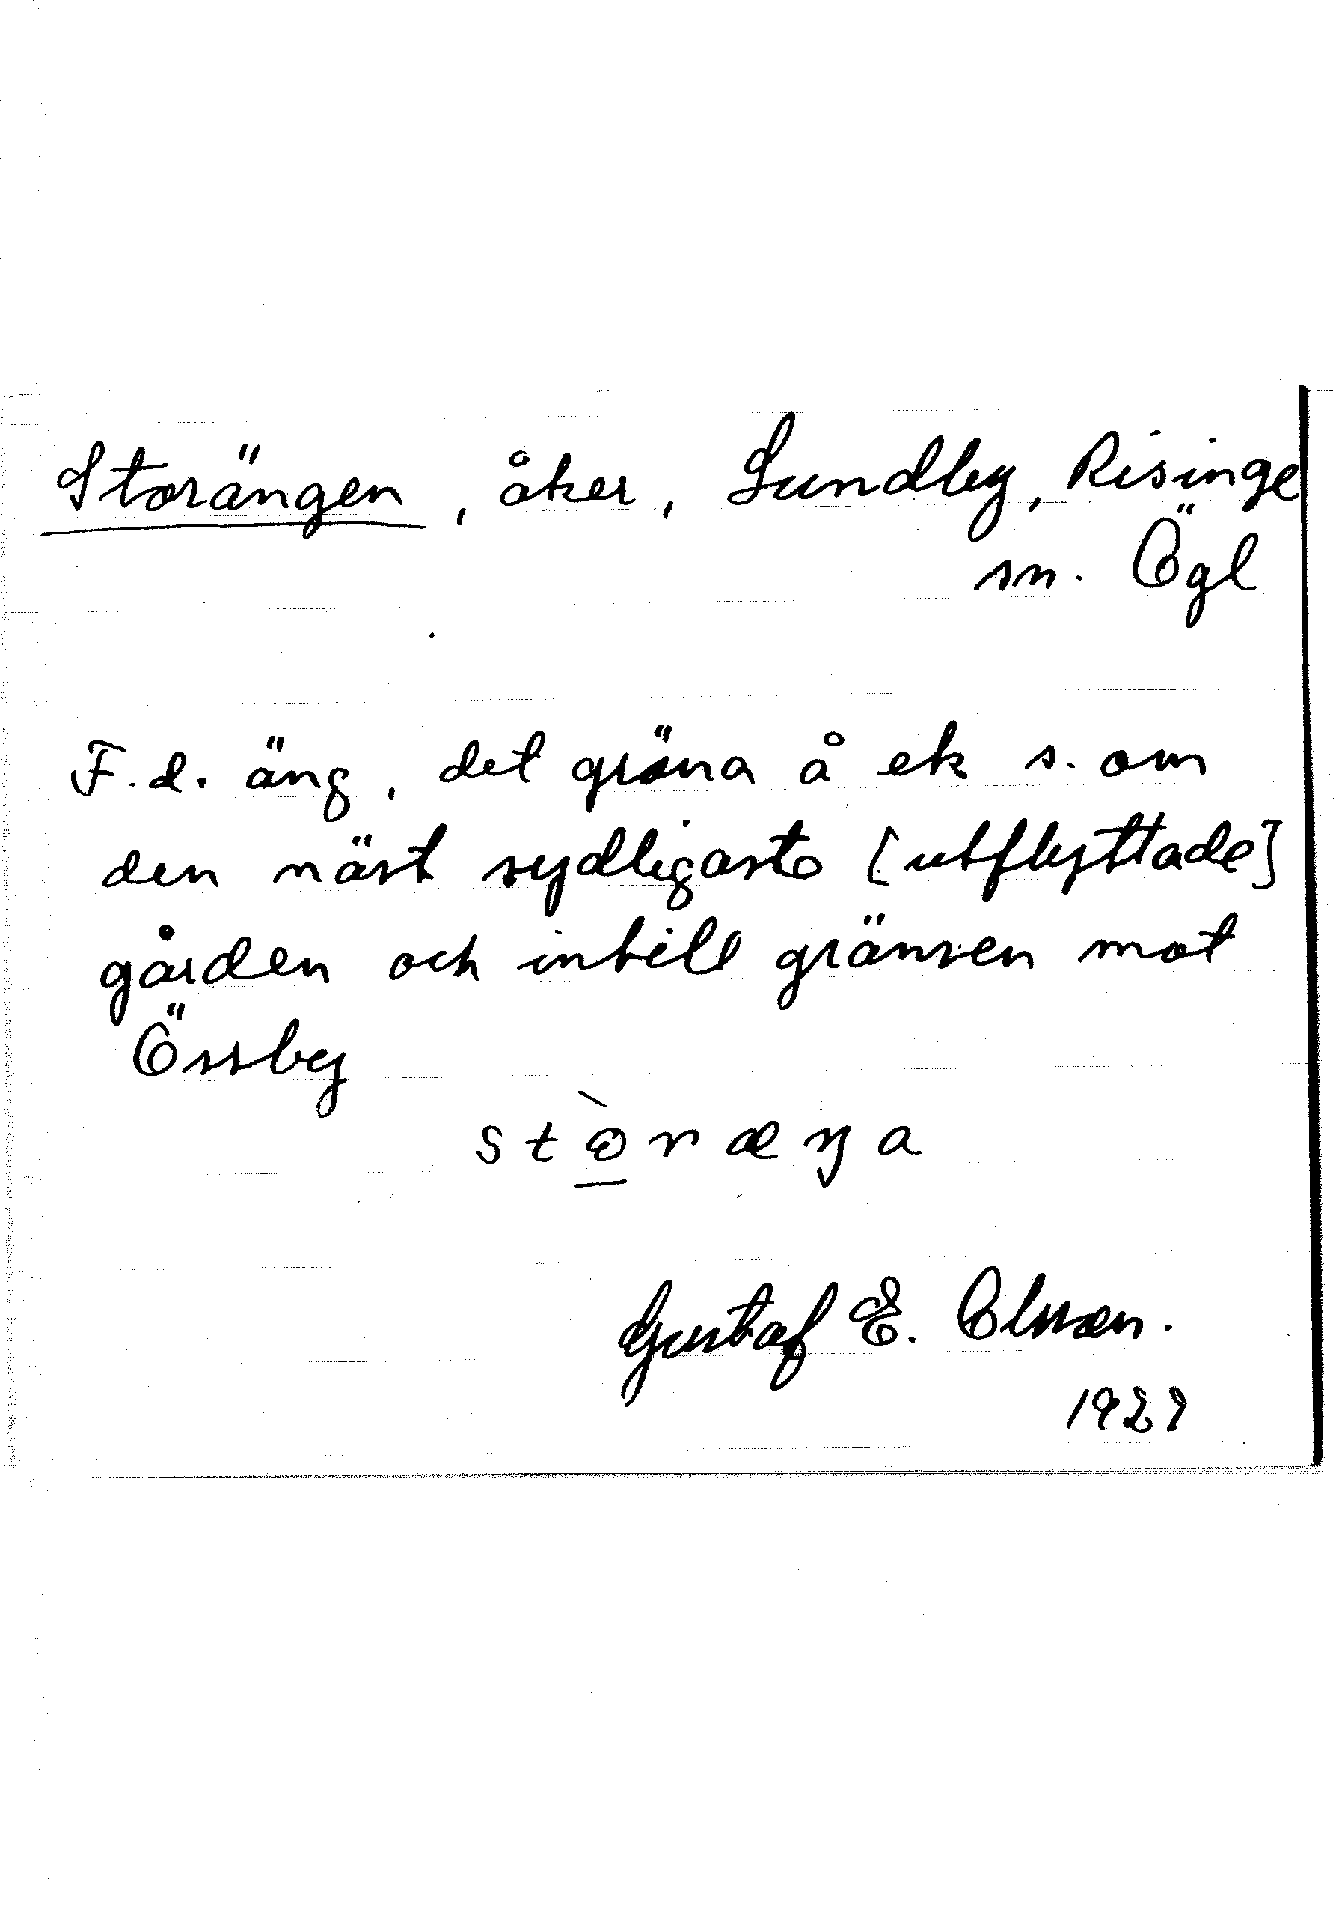 Storängen, åker, Lundby, Risinge
sn. Ögl
F.d. äng, det gröna å ek s. om
den näst sydligaste [utflyttade]
gården och intill gränsen mot
Össby
Gustaf E. Olsson.